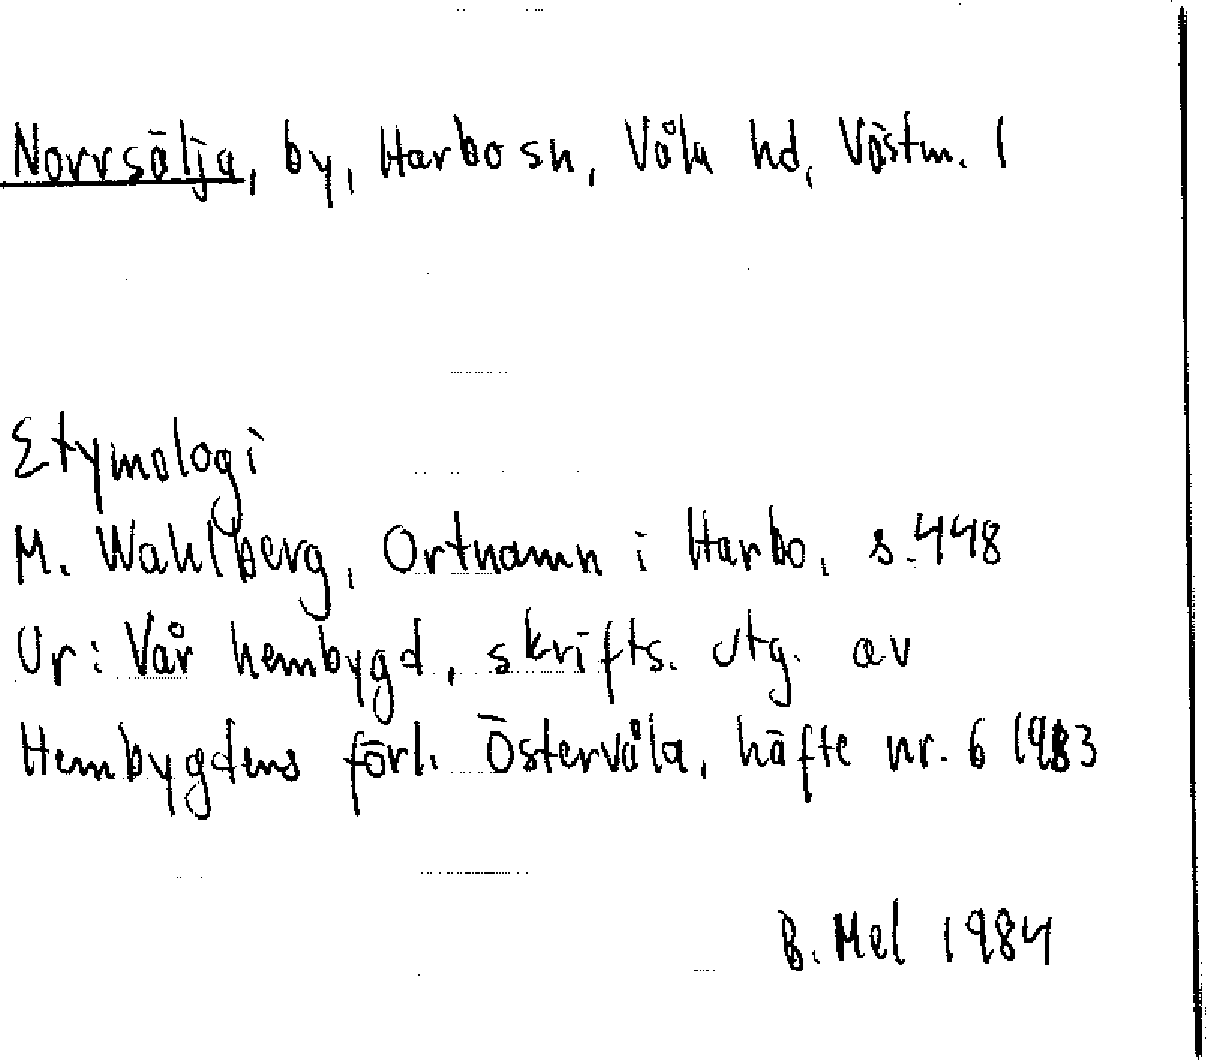 Norrsälja, by, Harbo sn, Våla hd, Västm. l
Etymologi
M. Wahlberg, Ortnamn i Harbo, s. 448
Ur: Vår hembygd, skrifts. utg. av
Hembygdens förl. Östervåla, häfte nr. 6 1983
B. Mel 1984